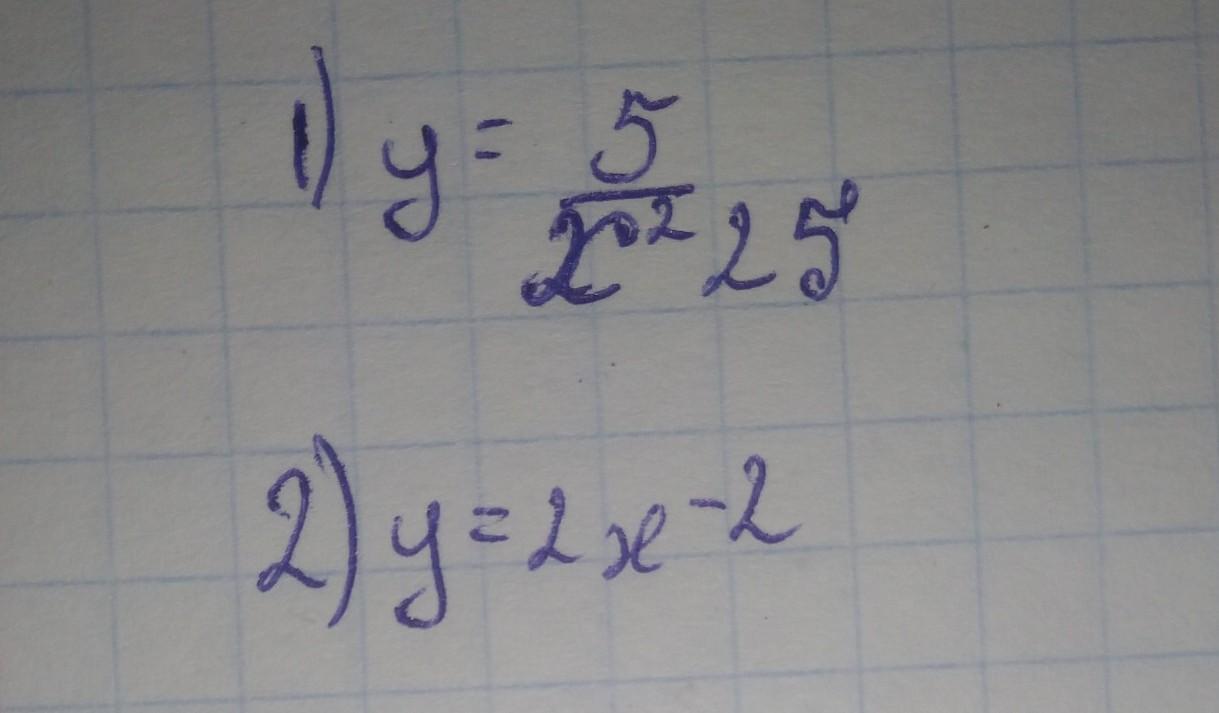 1) y = 5/x² 25
2) y = 2x - 2